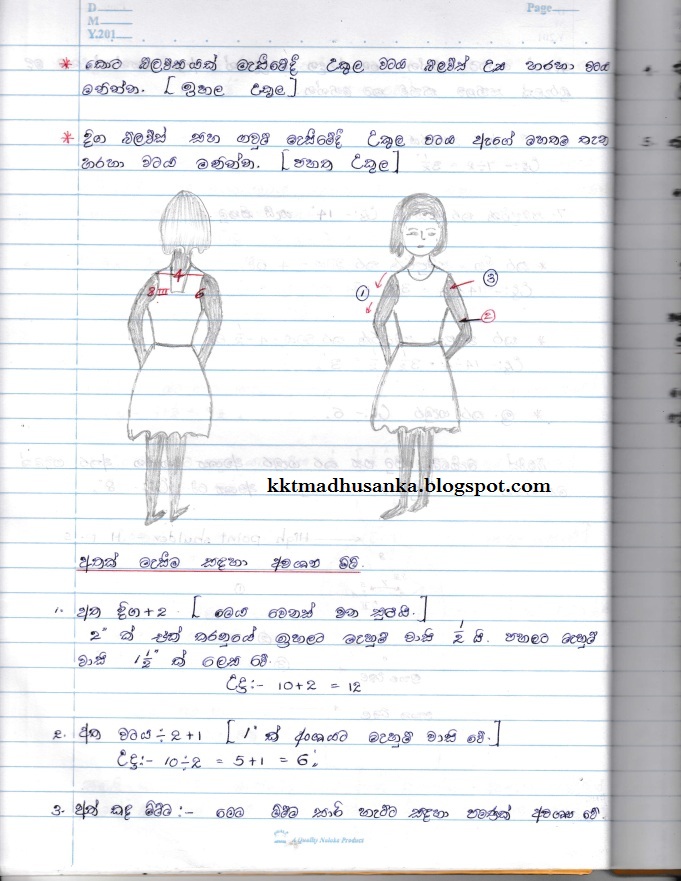 D
M
Y.201
Page
* කොට බ්ලවුසයක් මැසීමේදී උකුල වටය බ්ලවුස් උස හරහා වටය
මණින්න. [ඉහල උකුල]
* දිග බ්ලවුස් සහ ගවුම් මැසීමේදී උකුල වටය ඇගේ මහතම තැන
හරහා වටය මණින්න. [පහත උකුල]
4
3 6
1
3
2
kktmadhusanka.blogspot.com
අතක් මැසීම සඳහා අවශ්‍ය මිම්.
1. අත දිග + 2 [මෙය වෙනස් විය හැකියි.]
2" ක් එක් කරනුයේ ඉහලට මැහුම් වාසි 1/2 යි. පහලට මැහුම්
වාසි 1 1/2" ක් ලෙස වේ.
උදා:- 10+2 = 12
2. අත වටය ÷ 2 + 1 [1" ක් අංශයට මැහුම් වාසි වේ.]
උදා:- 10÷2 = 5+1 = 6"
3. අත් කඳ මිම්ම :- මෙම මිම්ම සාරි හැට්ට සඳහා පමණක් අවශ්‍ය වේ.
A Quality Nataka Product